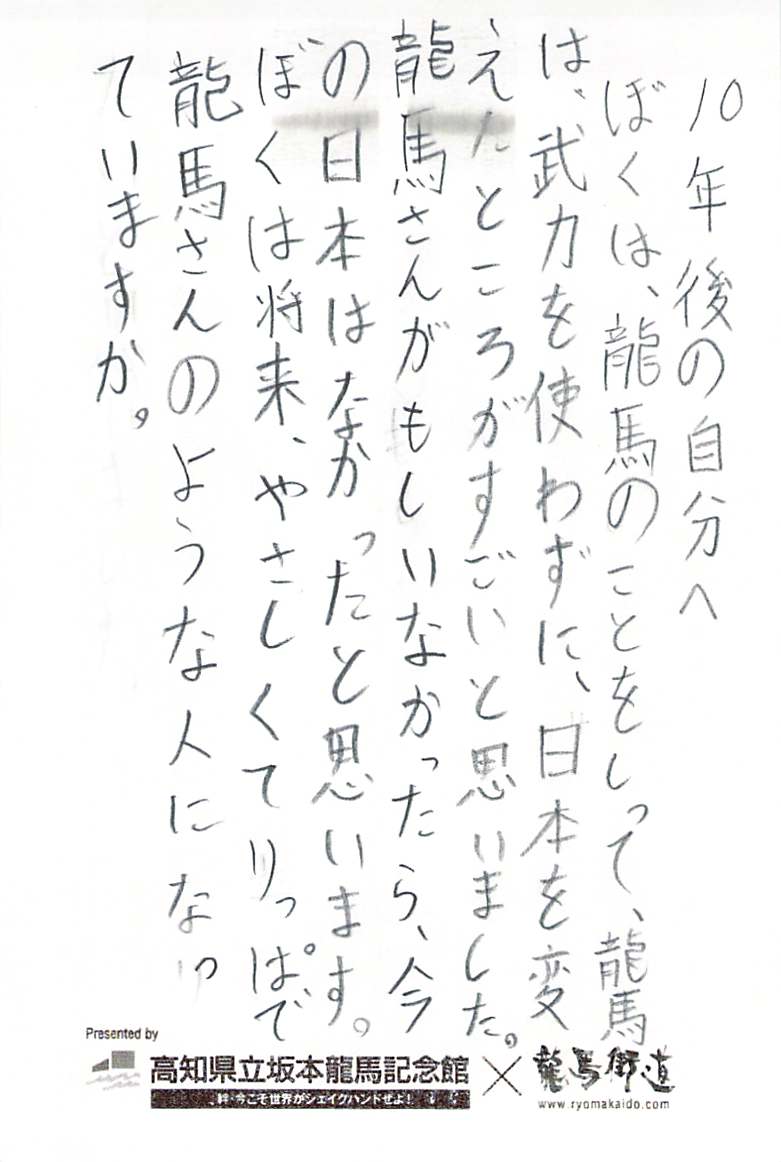 10年後の自分へ
ぼくは、龍馬のことをしって、龍馬
は、武力を使わずに、日本を変
えたところがすごいと思いました。
龍馬さんがもしいなかったら、今
の日本はなかったと思います。
ぼくは将来、やさしくてりっぱで
龍馬さんのような人になっ
ていますか。
Presented by
高知県立坂本龍馬記念館×龍馬街道
絆・今こそ世界がシェイクハンドせよ!
www.ryomakaido.com